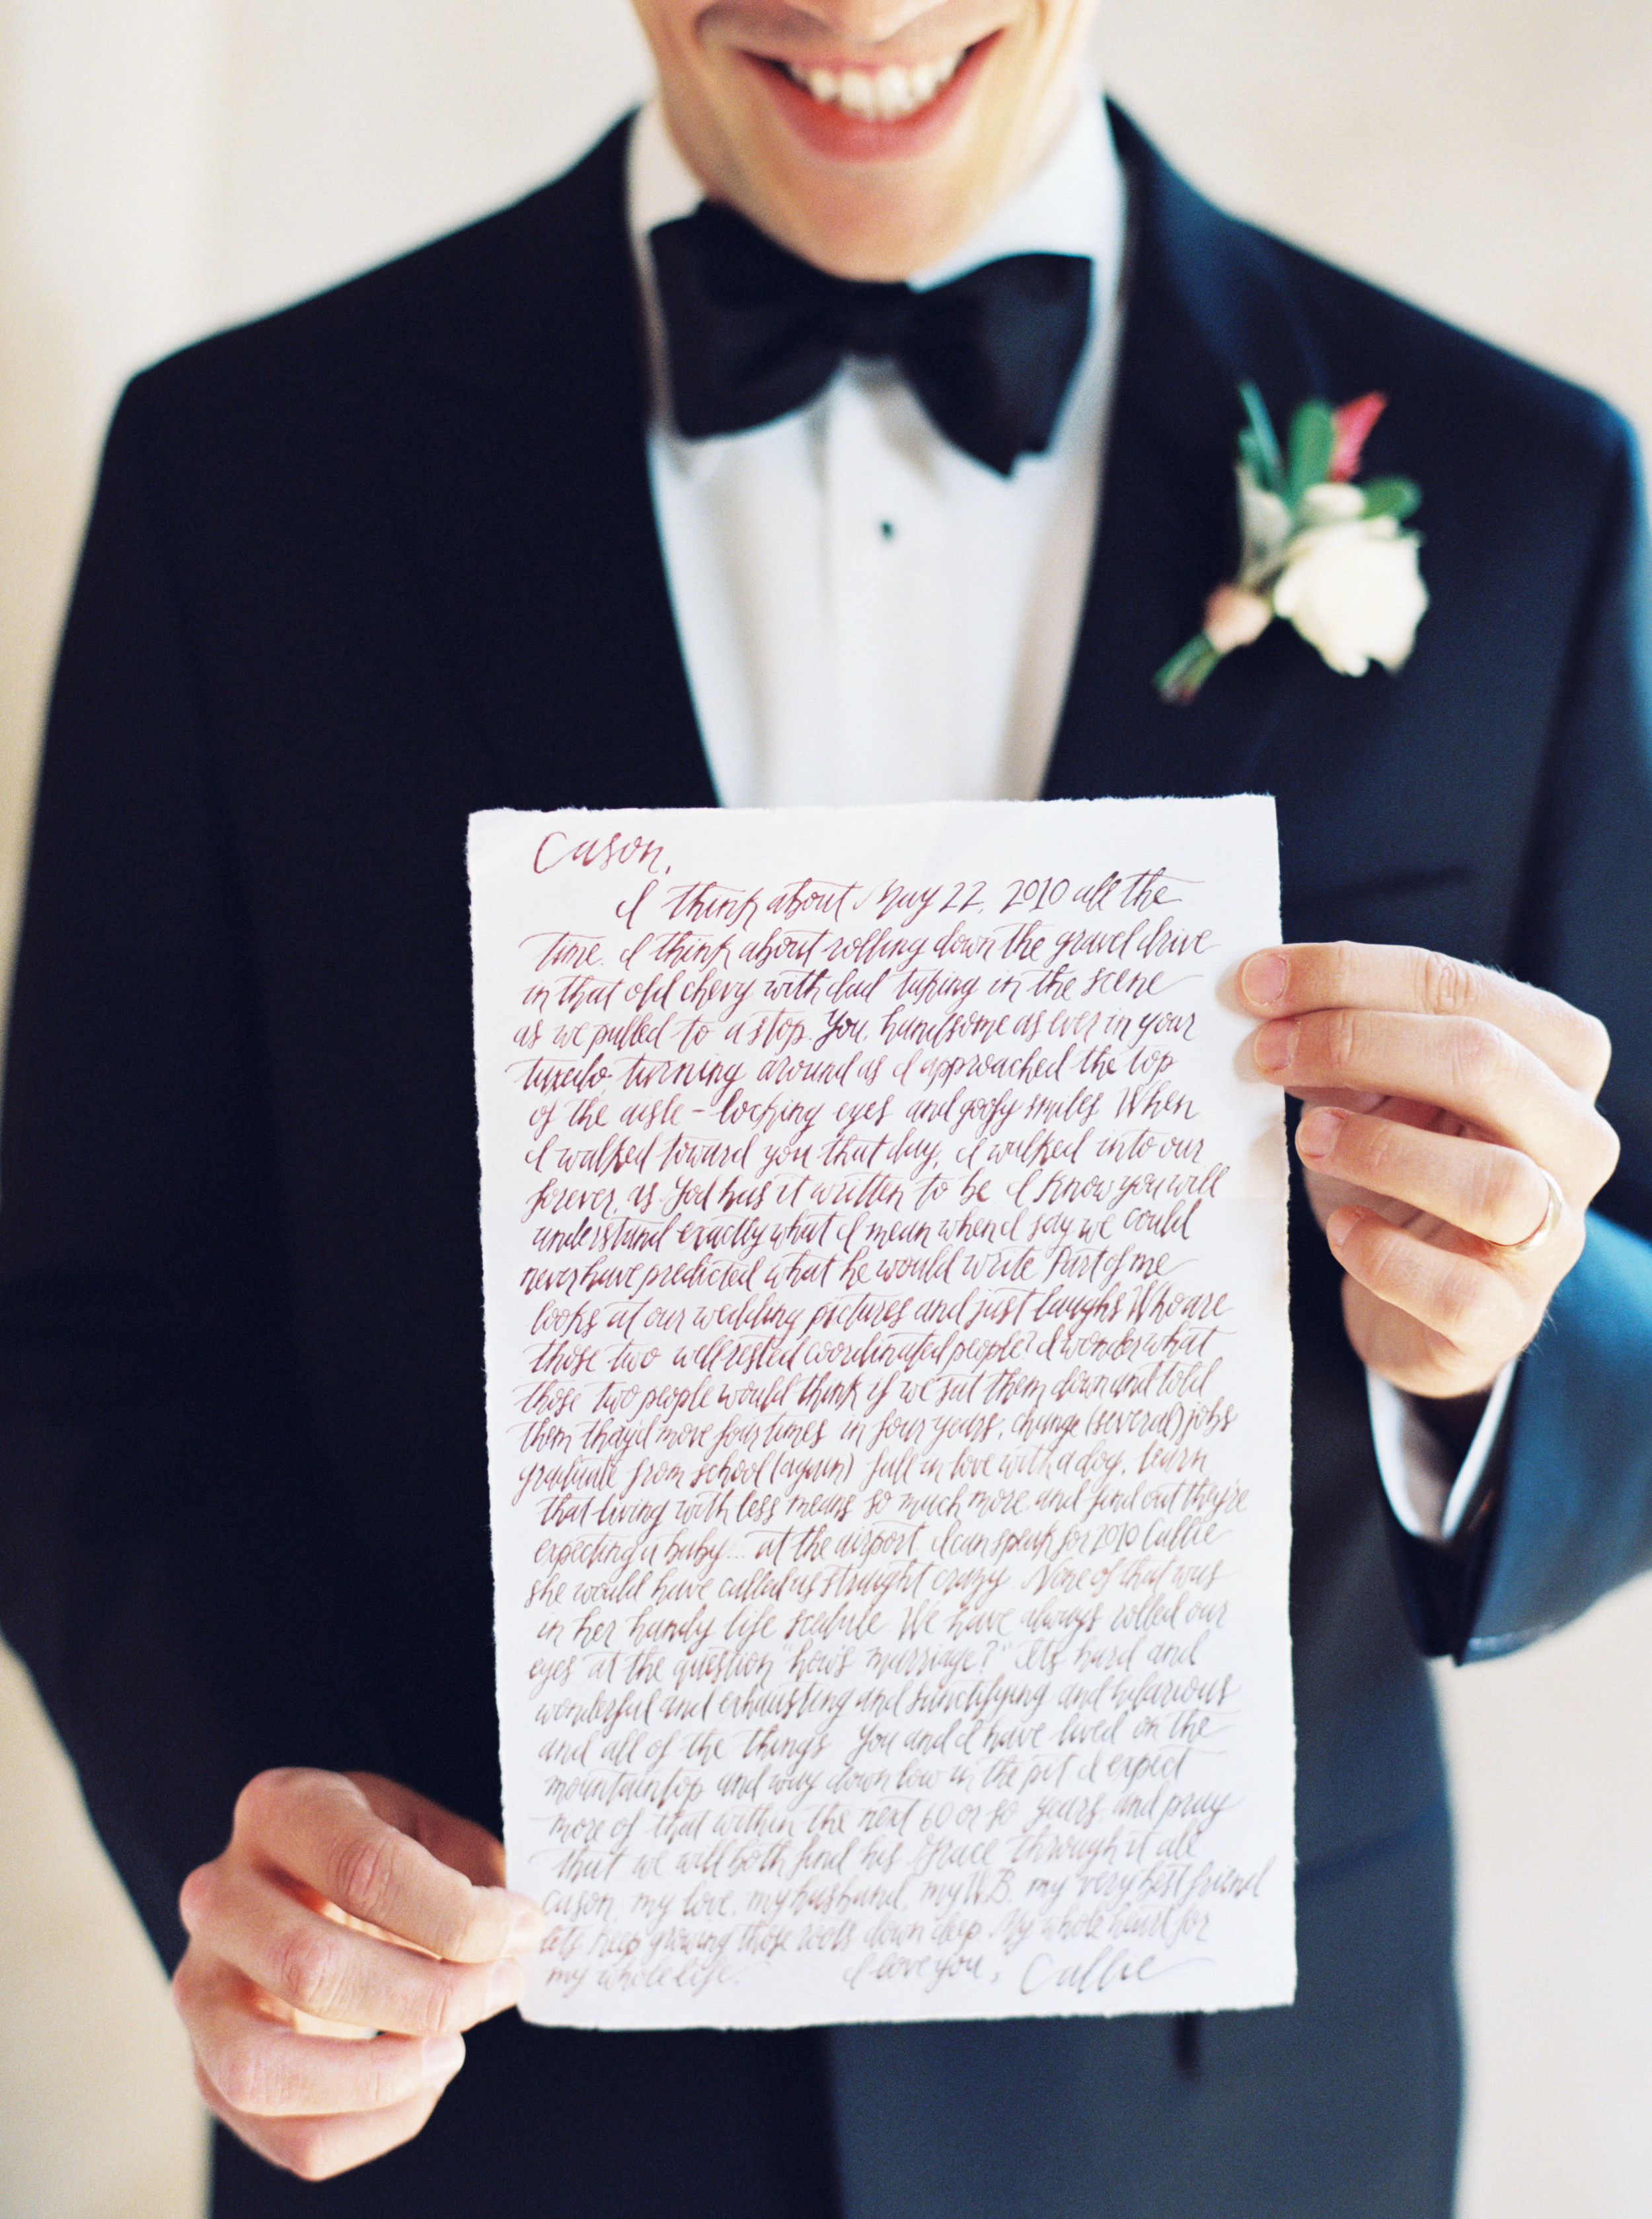 Cason,
I think about May 22, 2010 all the
time. I think about rolling down the gravel drive
in that old chevy with dad taking in the scene
as we pulled to a stop. You, handsome as ever in your
tuxedo, turning around as I approached the top
of the aisle - locking eyes and goofy smiles. When
I walked toward you that day, I walked into our
forever, as God has it written to be. I know you will
understand exactly what I mean when I say we could
never have predicted what he would write. Part of me
looks at our wedding pictures and just laughs. Who are
those two well rested coordinated people? I wonder what
those two people would think if we sat them down and told
them they'd move four times in four years, change (several) jobs
graduate from school (again) fall in love with a dog, learn
that living with less means so much more and find out they're
expecting a baby... at the airport. I can speak for 2010 Callie
she would have called us straight crazy. None of that was
in her handy life. We have always rolled our
eyes at the question "how's marriage?" It's hard and
wonderful and exhausting and sanctifying and hilarious
and all of the things. You and I have lived on the
mountain top and way down low in the pit. I expect
more of that within the next 60 or so years and pray
that we will both find his Grace through it all
Cason, my love, my husband, my W.B, my very best friend
lets keep growing those roots down deep. My whole heart for
my whole life. I love you, Callie